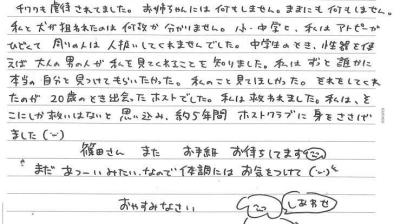 チワワも虐待されてました。お姉ちゃんには何もしません。ままにも何もしません。
私と犬が狙われたのは何故か分かりません。小・中学と、私はアトピーが
ひどくて周りの人は人扱いしてくれませんでした。中学生のとき、性器を使
えば大人の男の人が私を見てくれることを知りました。私はずっと誰かに
本当の自分を見つけてもらいたかった。私のこと見てほしかった。それをしてくれ
たのが20歳のとき出会ったホストでした。私は救われました。私は、そ
こにしか救いはないと思い込み、約5年間ホストクラブに身をささげ
ました
篠田さん また お手紙 お待ちしてます
まだ あつーいみたい。なので体調にはお気をつけて
おやすみなさい
しあわせ